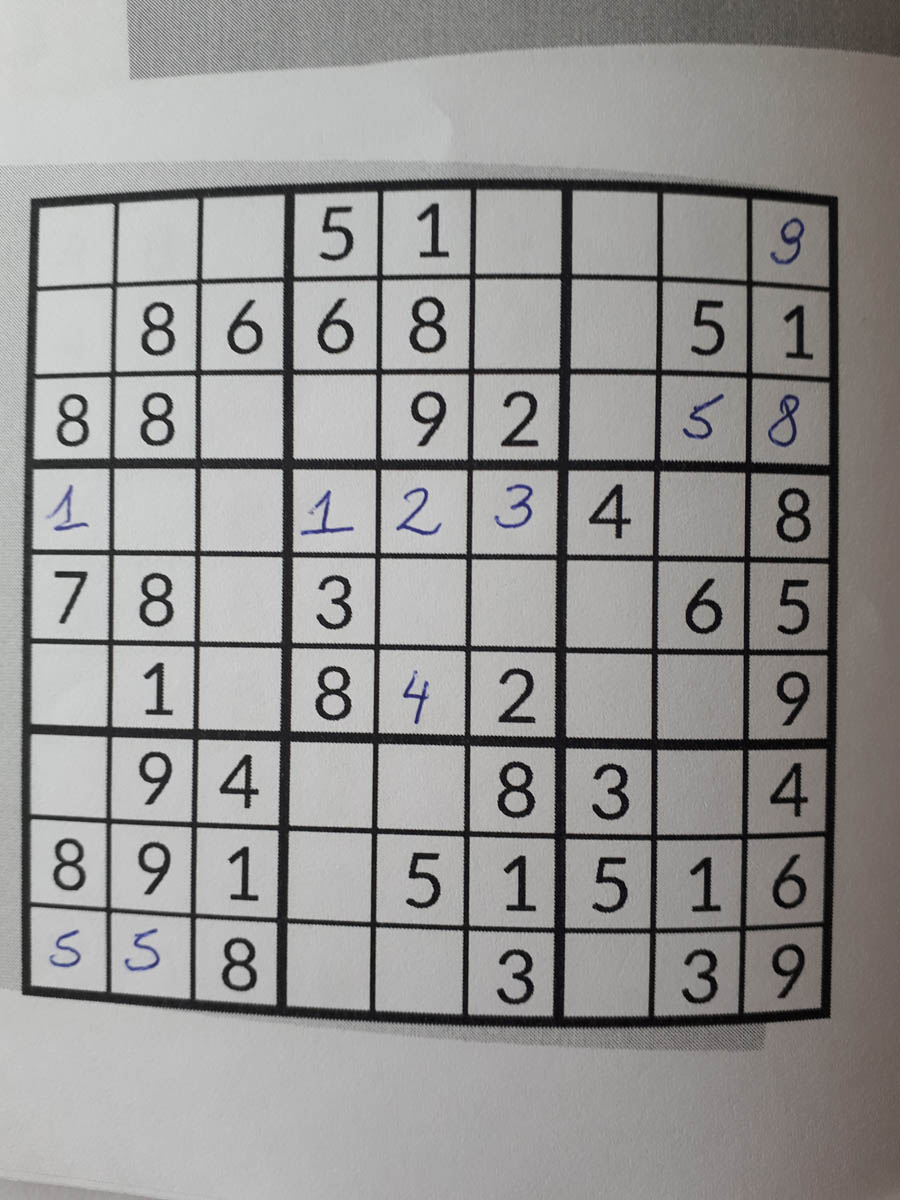 5 1 9
8 6 6 8 5 1
8 8 9 2 5 8
1 1 2 3 4 8
7 8 3 6 5
1 8 4 2 9
9 4 8 3 4
8 9 1 5 1 5 1 6
5 5 8 3 3 9